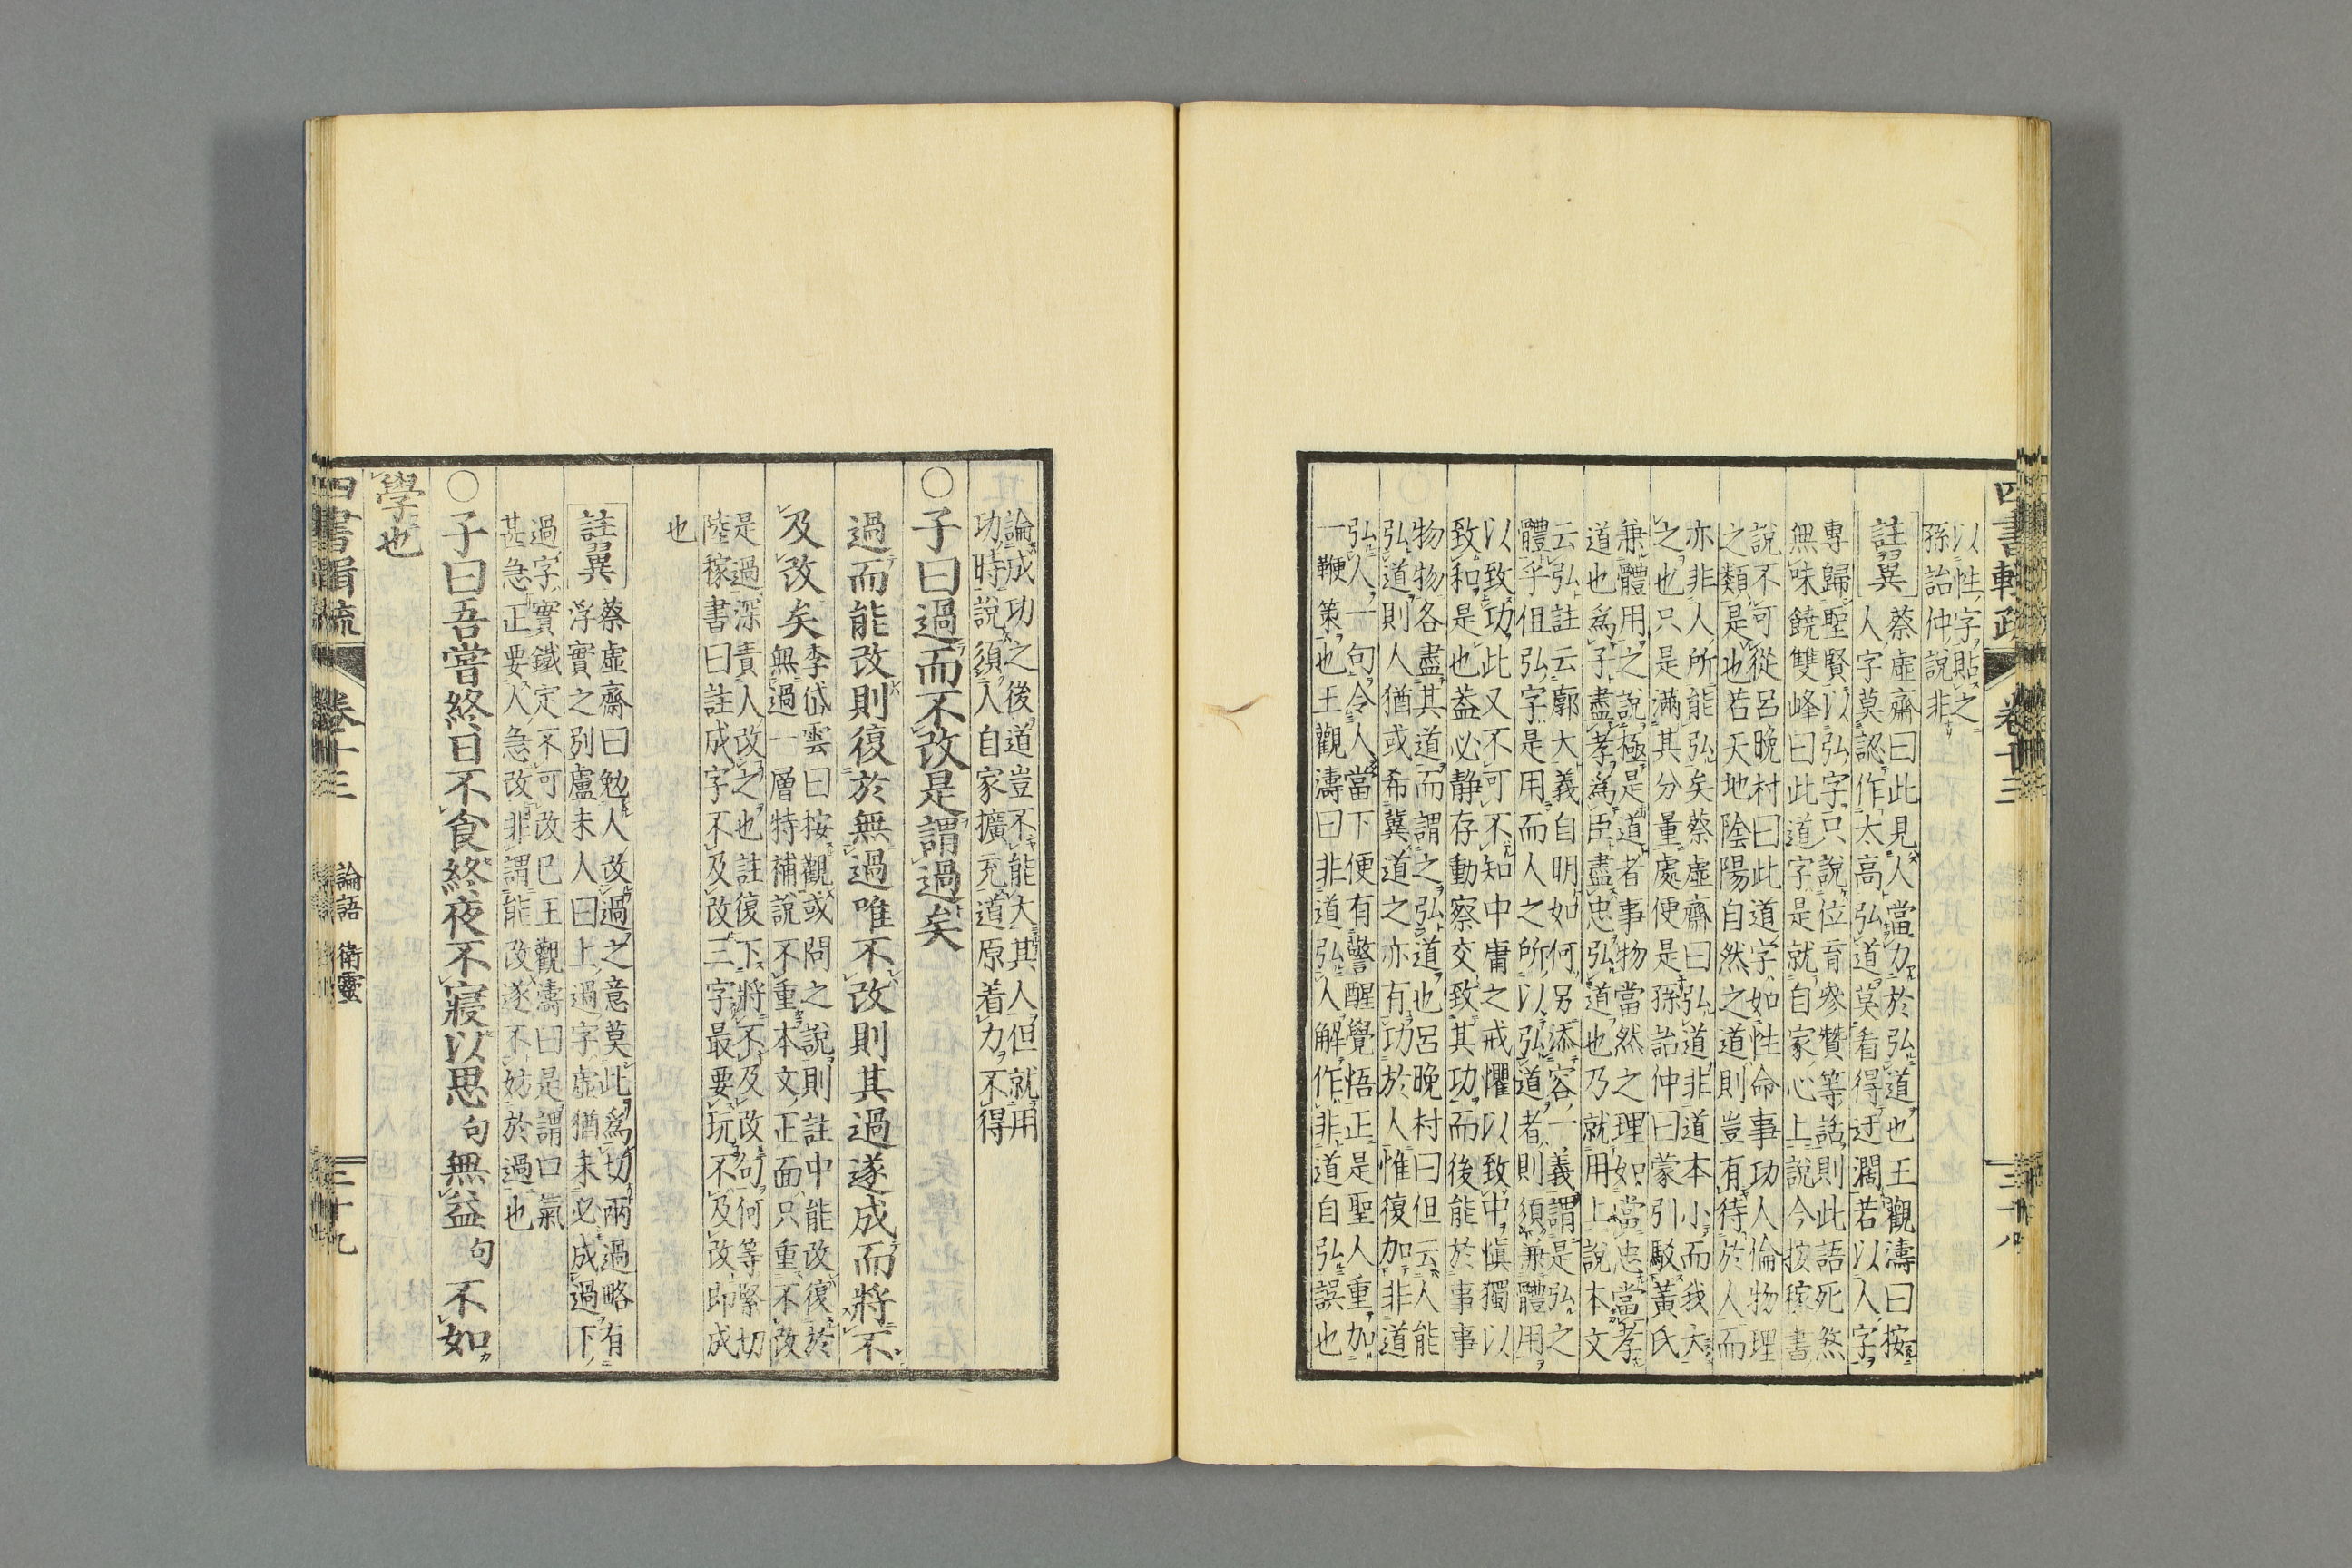 以性字貼之
孫詒仲說非
註翼
蔡虛齋曰此見人當力於弘道也王觀濤曰按
人字莫認作太高弘道莫看得迂濶若以人字
專歸聖賢以弘字只說位育參贊等話則此語死煞
無味饒雙峰曰此道字是就自家心上說今按稼書
說不可從呂晚村曰此道字如性命事功人倫物理
之類是也若天地陰陽自然之道則豈有待於人而
亦非人所能弘矣蔡虛齋曰弘道非道本小而我大
之也只是滿其分量處便是孫詒仲曰蒙引駁黃氏
兼體用之說極是道者事物當然之理如當忠當孝
道也為子盡孝為臣盡忠弘道也乃就用上說本文
云弘註云廓大義自明如何另添容一義謂是弘之
體乎但弘字是用而人之所以弘道者則須兼體用
以致功此又不可不知中庸之戒懼以致中愼獨以
致和是也蓋必静存動察交致其功而後能於事事
物物各盡其道而謂之弘道也呂晚村曰但云人能
弘道則人猶或希冀道之亦有功於人惟復加非道
弘人一句令人當下便有警醒覺悟正是聖人重加
一鞭策也王觀濤曰非道弘人解作非道自弘誤也
四書輯疏 卷十三 三十八
論成功之後道豈不能大其人但就用
功時說須人自家擴充道原着力不得
○子曰過而不改是謂過矣
過而能改則復於無過唯不改則其過遂成而將不
及改矣
李岱雲曰按觀或問之說則註中能改復於
無過一層特補說不重本文正面只重不改
是過深責人改之也註復下將不及改句何等緊切
陸稼書曰註成字不及改三字最要玩不及改即成
也
註翼
蔡虛齋曰勉人改過之意莫此為切兩過略有
浮實之別盧未人曰上過字虛猶未必成過下
過字實鐵定不可改已王觀濤曰是謂口氣
甚急正要人急改非謂能改遂不妨於過也
○子曰吾嘗終日不食終夜不寢以思句無益句不如
學也
四書輯疏 卷十三 論語 衛靈 三十九